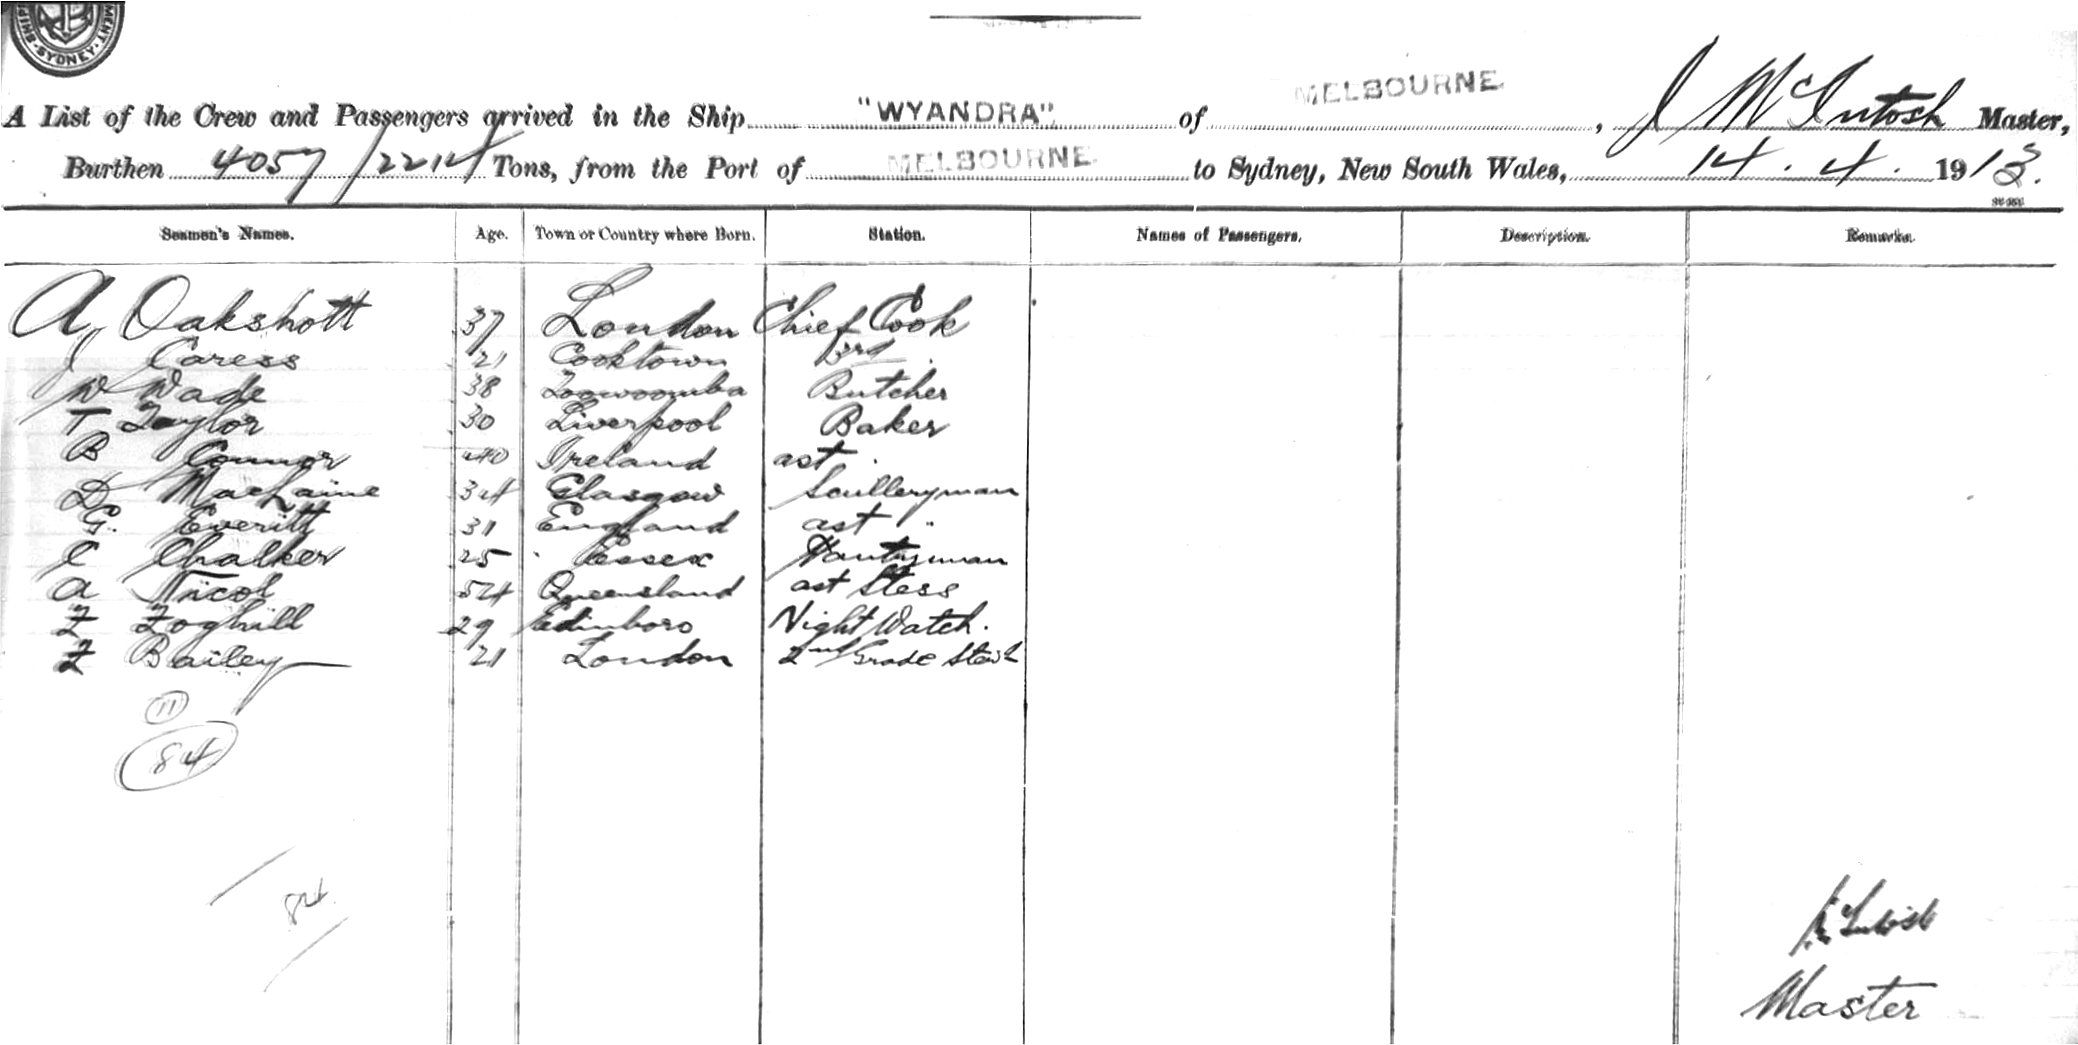 SHIP
SYDNEY
MENT
A List of the Crew and Passengers arrived in the Ship "WYANDRA" of MELBOURNE, J McIntosh Master,
Burthen 4057/2214 Tons, from the Port of MELBOURNE to Sydney, New South Wales, 14.4.1913.
Seamen's Names. Age. Town or Country where Born. Station. Names of Passengers. Description. Remarks.
A Oakshott 37 London Chief Cook
J Caress 21 Cooktown
W Wade 38 Toowoomba Butcher
T Taylor 30 Liverpool Baker
B Connor 40 Ireland ast "
D MacLaine 34 Glasgow Sculleryman
G. Everitt 31 England ast "
C Chalker 25 Essex Pantryman
A Nicol 54 Queensland ast Stess
F Foghill 29 Edinboro Night Watch.
F Bailey 21 London 2nd Grade Stewd
11
84
84
Master